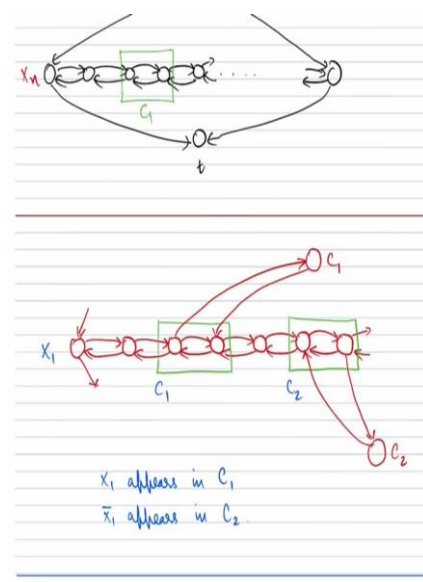 Xn
C1
t
C1
X1
C1
C2
C2
x1 appears in C1
x̄1 appears in C2.